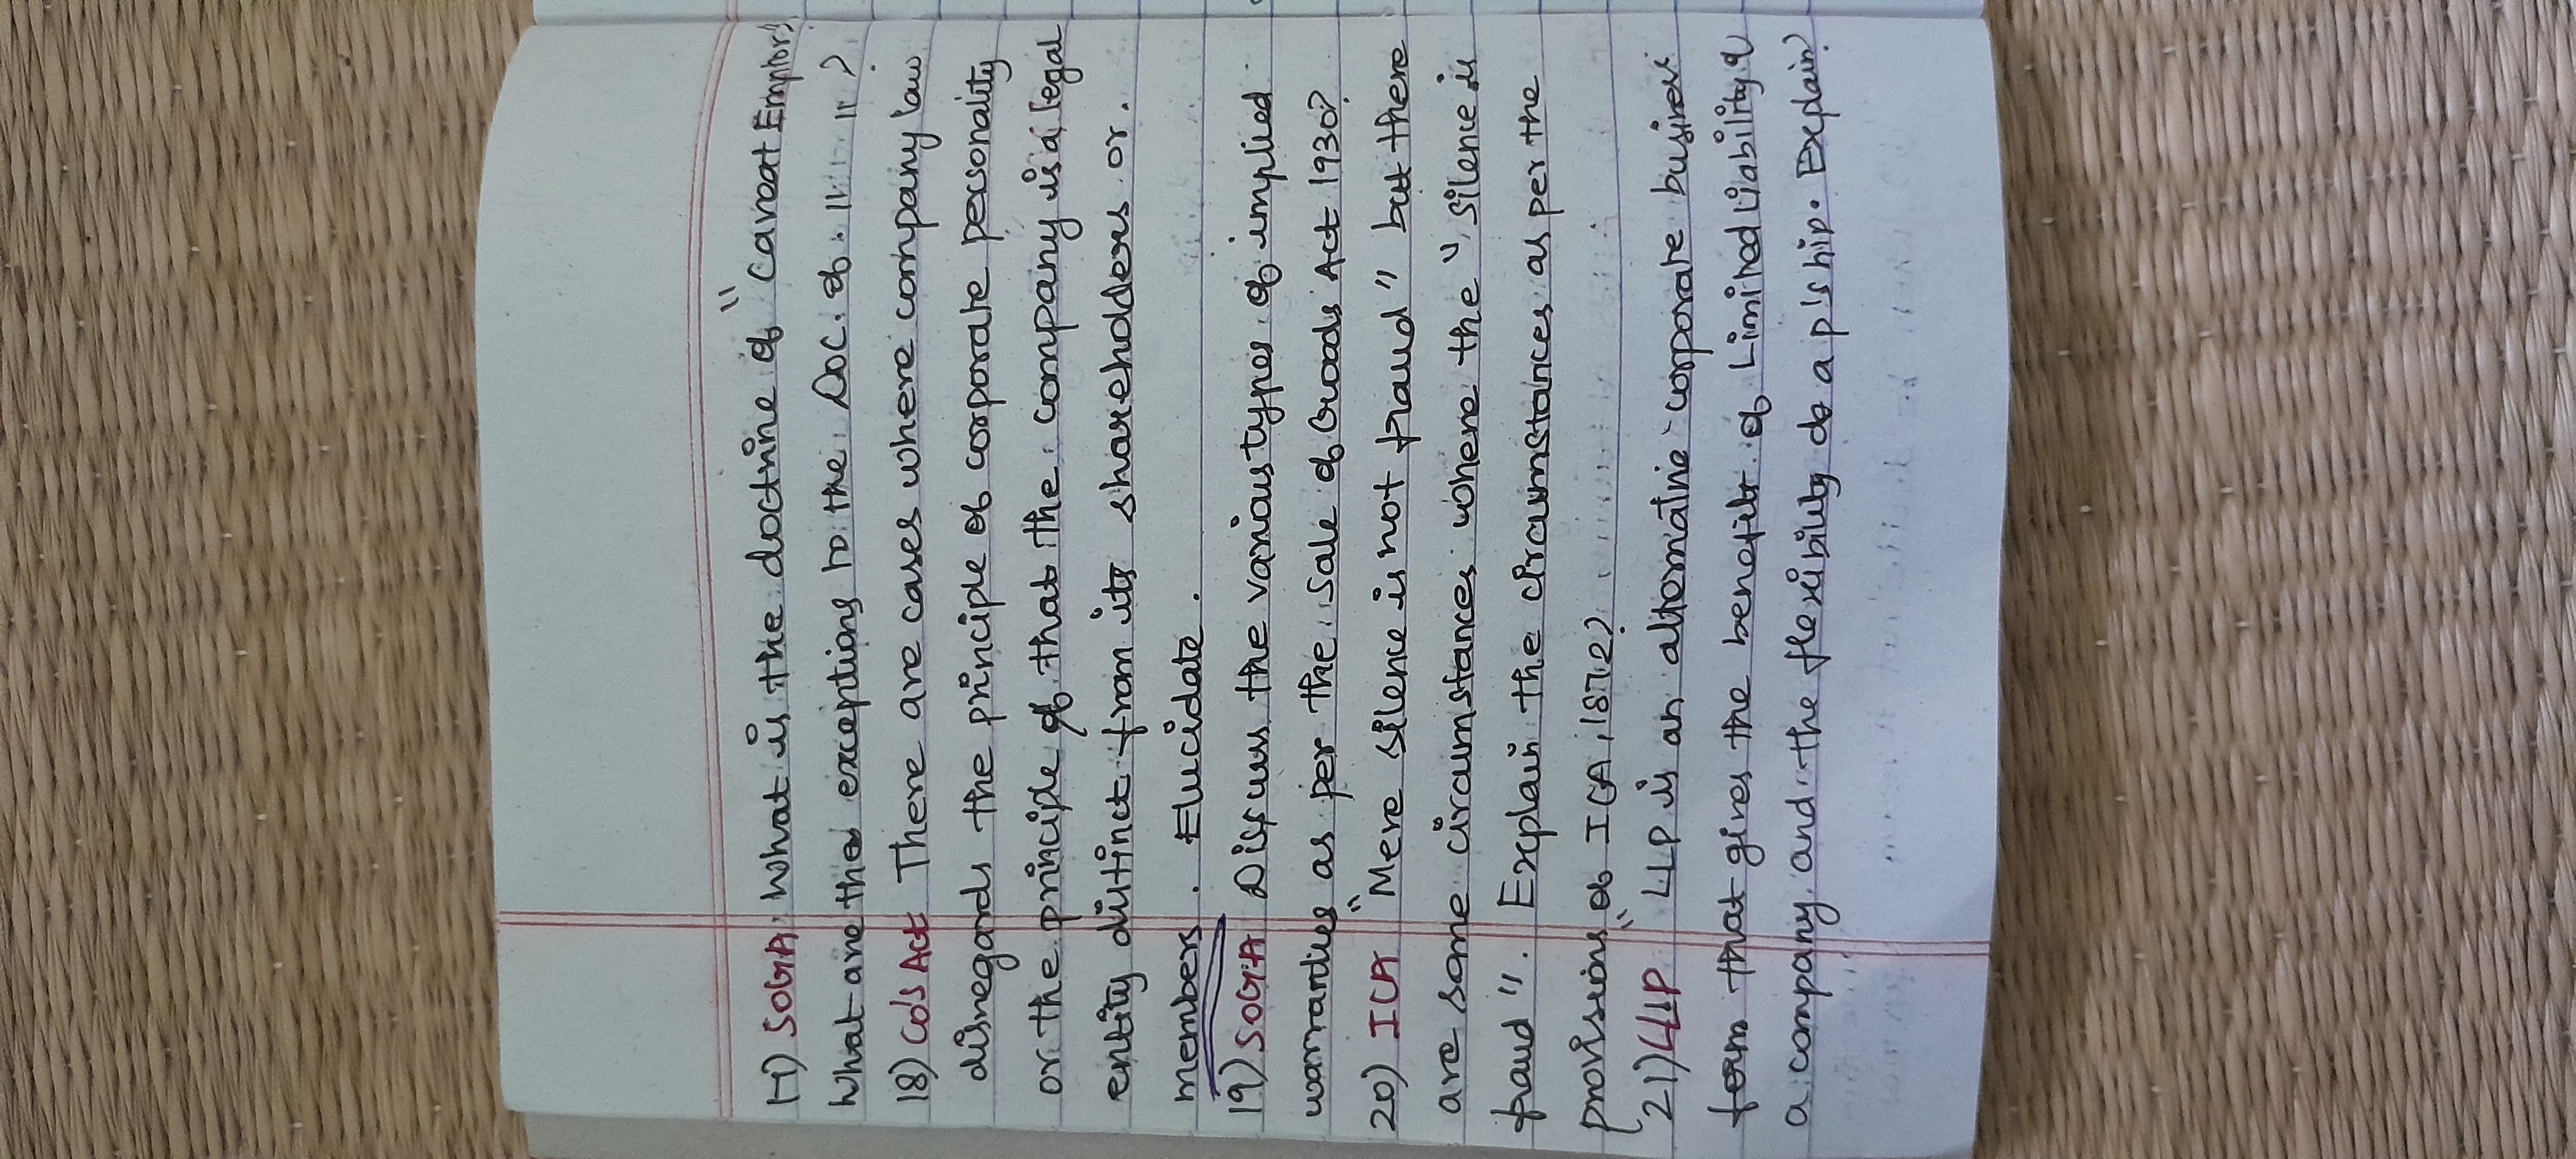 17) SOGA What is the doctrine of "Caveat Emptor"?
What are the exceptions to the Doc. of. 11 11 ?
18) Co's Act There are cases where company law
disregards the principle of corporate personality
or the principle of that the company is a legal
entity distinct from its shareholders or.
members. Elucidate.
19) SOGA Discuss the various types of implied
warranties as per the Sale of Goods Act 1930?
20) ICA "Mere silence is not fraud" but there
are some circumstances where the "silence is
fraud". Explain the circumstances as per the
provisions of ICA, 1872?
21) LLP "LLP is an alternative corporate business
form that gives the benefits of Limited Liability of
a company and the flexibility of a p'ship. Explain?